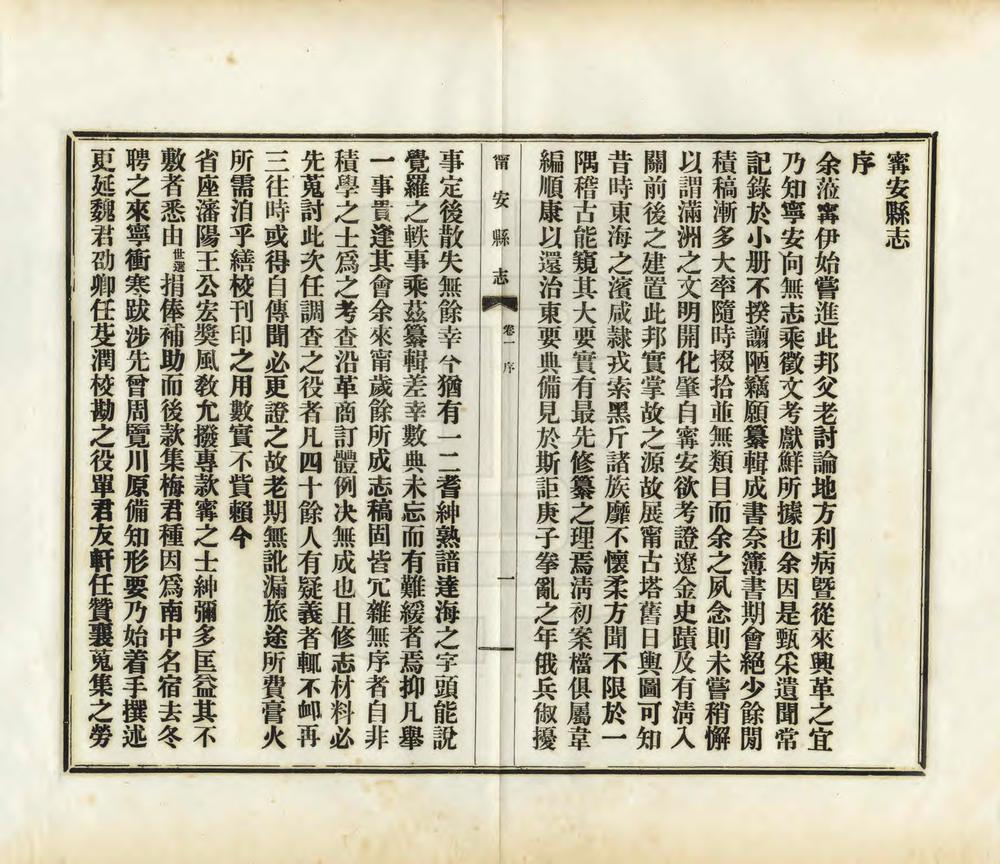 寗安縣志
序
余蒞寗伊始嘗進此邦父老討論地方利病暨從來興革之宜
乃知寧安向無志乘徵文考獻鮮所據也余因是甄采遺聞常
記錄於小册不揆譾陋竊願纂輯成書奈簿書期會絕少餘閒
積稿漸多大率隨時掇拾並無類目而余之夙念則未嘗稍懈
以謂滿洲之文明開化肇自寗安欲考證遼金史蹟及有清入
關前後之建置此邦實掌故之源故展甯古塔舊日輿圖可知
昔時東海之濱咸隷戎索黑斤諸族靡不懷柔方聞不限於一
隅稽古能窺其大要實有最先修纂之理焉清初案檔俱屬韋
編順康以還治東要典備見於斯詎庚子拳亂之年俄兵俶擾
甯安縣志
卷一 序
一
事定後散失無餘幸今猶有一二耆紳熟諳達海之字頭能說
覺羅之軼事乘茲纂輯差幸數典未忘而有難緩者焉抑凡舉
一事貴逢其會余來甯歲餘所成志稿固皆冗雜無序者自非
積學之士爲之考查沿革商訂體例决無成也且修志材料必
先蒐討此次任調查之役者凡四十餘人有疑義者輒不衈再
三往時或得自傳聞必更證之故老期無訛漏旅途所費膏火
所需洎乎繕校刊印之用數實不貲賴今
省座瀋陽王公宏獎風敎允撥專款寗之士紳彌多匡益其不
敷者悉由世選捐俸補助而後款集梅君種因爲南中名宿去冬
聘之來寧衝寒跋涉先曾周覽川原備知形要乃始着手撰述
更延魏君劭卿任芟潤校勘之役單君友軒任贊襄蒐集之勞